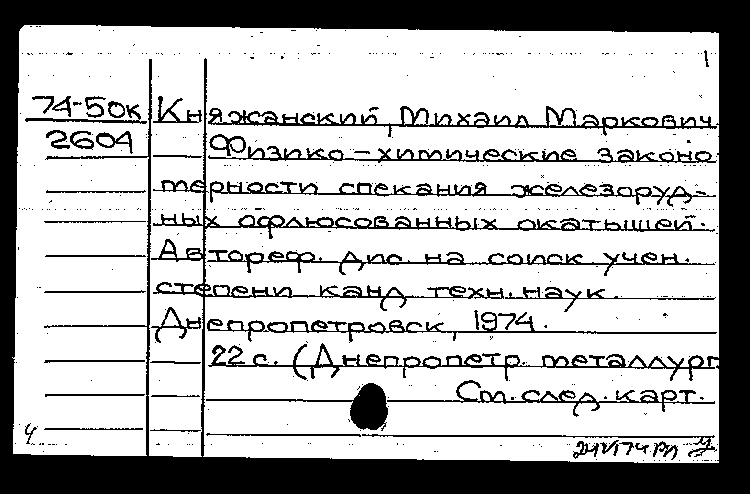 1
74-50к Княжанский, Михаил Маркович
2604 Физико-химические законо
терности спекания железоруд-
ных офлюсованных окатышей.
Автореф. дис. на соиск учен.
степени канд техн. наук.
Днепропетровск, 1974.
22 с. (Днепропетр. металлург
См. след. карт.
4